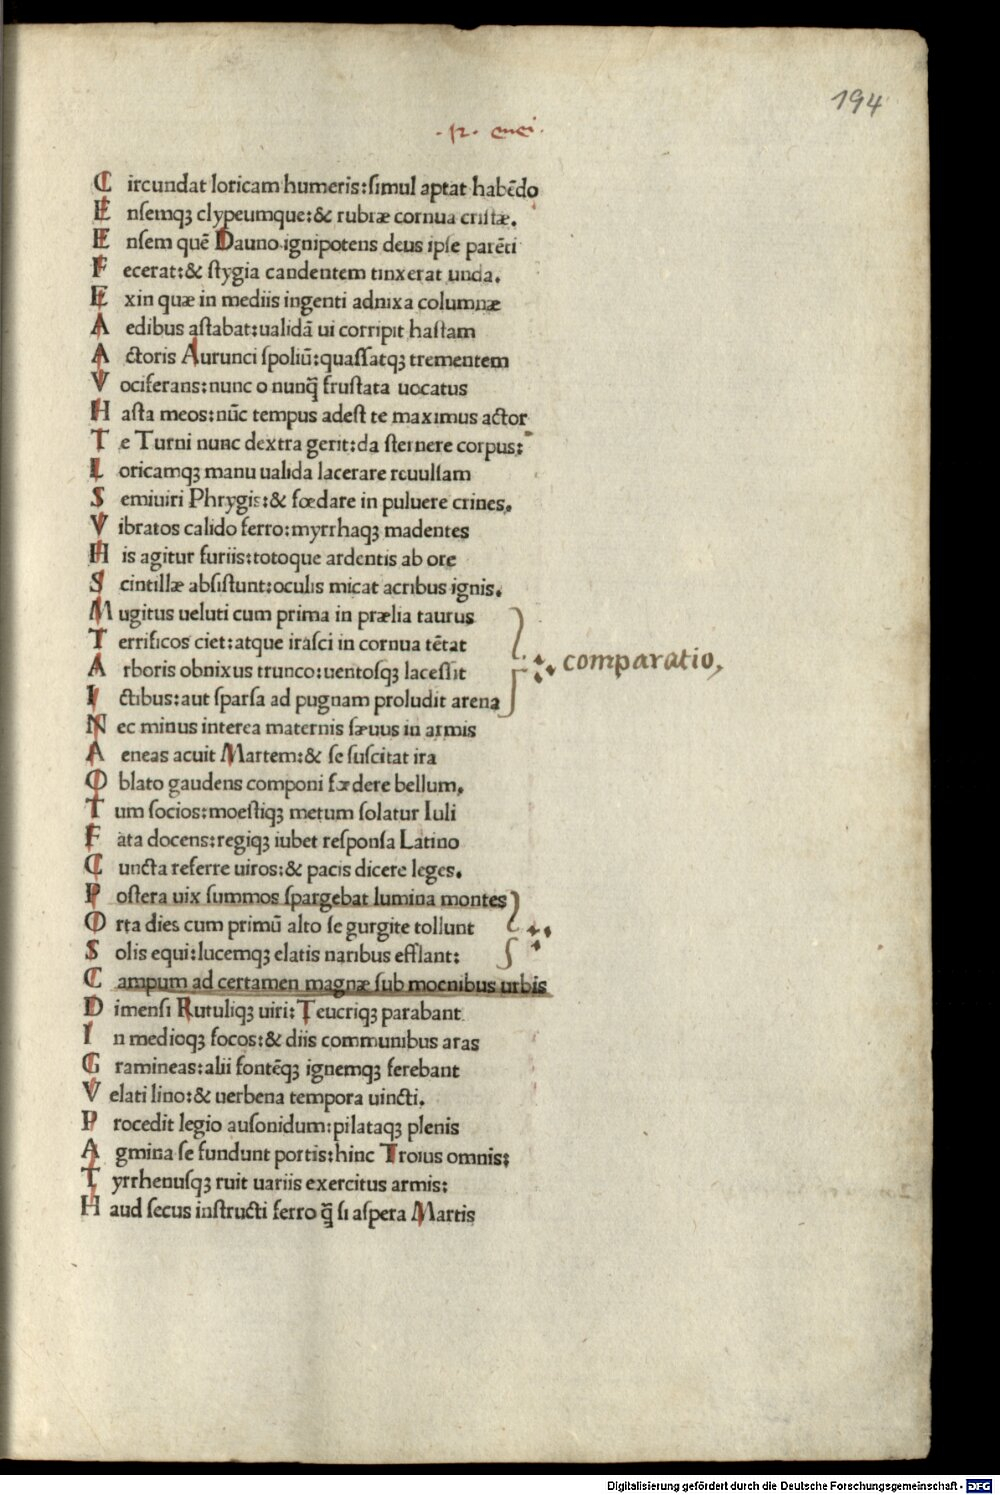 194
.12. enei.
C ircundat loricam humeris:simul aptat habēdo
E nsemqꝫ clypeumque:& rubræ cornua cristæ.
E nsem quē Dauno ignipotens deus ipse parēti
F ecerat:& stygia candentem tinxerat unda.
E xin quæ in mediis ingenti adnixa columnæ
A edibus astabat:ualidā ui corripit hastam
A ctoris Aurunci spoliū:quassatqꝫ trementem
V ociferans:nunc o nunq̄ frustata uocatus
H asta meos:nūc tempus adest te maximus actor
T e Turni nunc dextra gerit:da sternere corpus:
L oricamqꝫ manu ualida lacerare reuulsam
S emiuiri Phrygis:& fœdare in puluere crines.
V ibratos calido ferro:myrrhaqꝫ madentes
H is agitur furiis:totoque ardentis ab ore
S cintillæ absistunt:oculis micat acribus ignis.
M ugitus ueluti cum prima in prælia taurus
T errificos ciet:atque irasci in cornua tētat
A rboris obnixus trunco:uentosqꝫ lacessit
comparatio,
I ctibus:aut sparsa ad pugnam proludit arena
N ec minus interea maternis sæuus in armis
A eneas acuit Martem:& se suscitat ira
O blato gaudens componi fœdere bellum.
T um socios:moestiqꝫ metum solatur Iuli
F ata docens:regiqꝫ iubet responsa Latino
C uncta referre uiros:& pacis dicere leges.
P ostera uix summos spargebat lumina montes
O rta dies cum primū alto se gurgite tollunt
S olis equi:lucemqꝫ elatis naribus efflant:
C ampum ad certamen magnæ sub moenibus urbis
D imensi Rutuliqꝫ uiri:Teucriqꝫ parabant
I n medioqꝫ focos:& diis communibus aras
G ramineas:alii fontēqꝫ ignemqꝫ ferebant
V elati lino:& uerbena tempora uincti.
P rocedit legio ausonidum:pilataqꝫ plenis
A gmina se fundunt portis:hinc Troius omnis:
T yrrhenusqꝫ ruit uariis exercitus armis:
H aud secus instructi ferro q̄ si aspera Martis
Digitalisierung gefördert durch die Deutsche Forschungsgemeinschaft - DFG